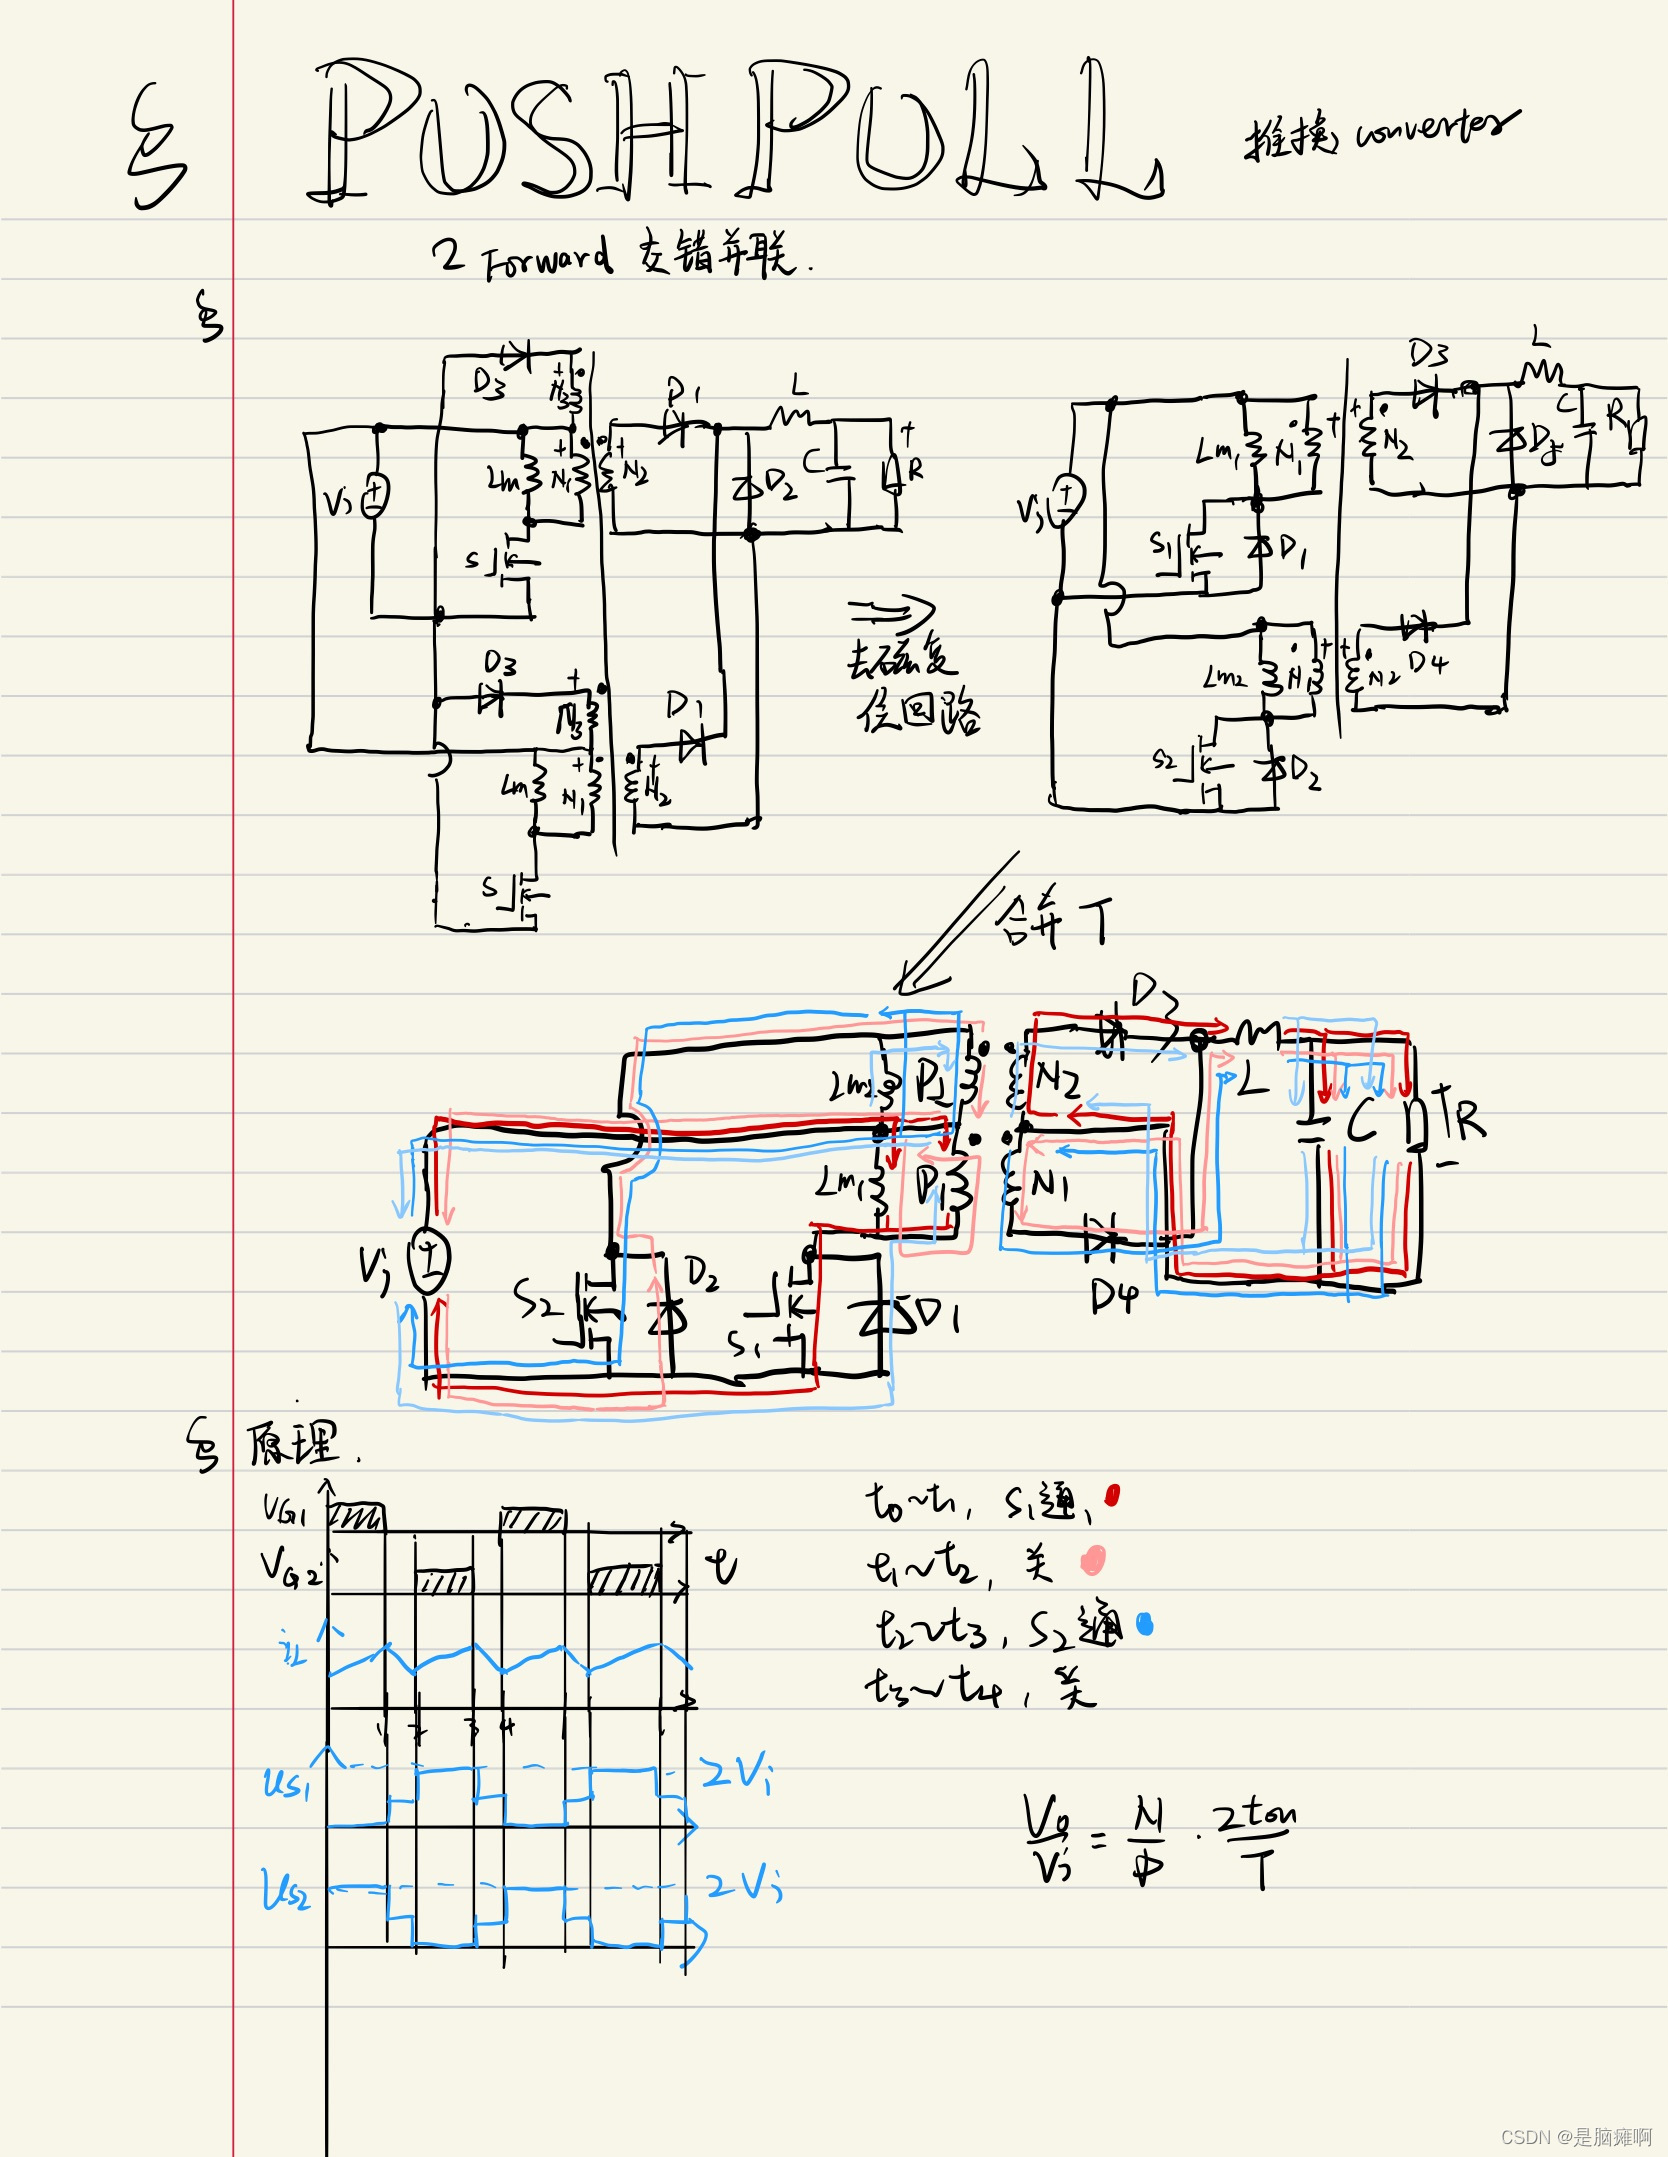 § PUSH PULL 推挽 converter
2 Forward 交错并联.
§
D3 N3 D1 L
Vi Lm N1 N2 C D2 R
S
D3 N3 D1
Lm N1 N2
S
⇒
去磁复
位回路
D3 L
Vi Lm1 N1 N2 D5 C R
S1 D1
Lm2 N1 N2 D4
S2 D2
合并 T
Lm2 P2 N2 D3 L
Lm1 P1 N1 C R
Vi S2 D2 S1 D1 D4
§ 原理.
VG1
VG2 t
iL
1 2 3 4
us1 2Vi
Us2 2Vi
t0~t1, S1通,
t1~t2, 关
t2~t3, S2通
t3~t4, 关
Vo/Vi = N/P · 2ton/T
CSDN @是脑瘫啊